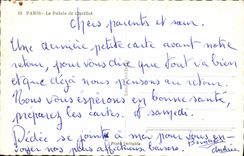 13 PARIS - Le Palais de Chaillot
Chers parents et sœur.
Une dernière petite carte avant notre
retour, pour vous dire que tout va bien
et que déjà nous pensons au retour.
Nous vous espérons en bonne santé,
préparez les cartes. A samedi.
Dédée se joint à moi pour vous en-
voyer nos plus affectueux baisers.